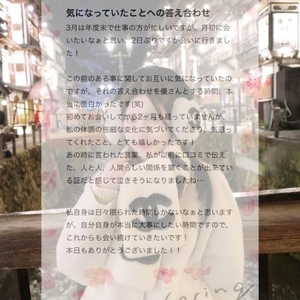 気になっていたことへの答え合わせ
3月は年度末で仕事の方が忙しいですが、月初に会
いたいなぁと思い、2日ぶりですが会いに行きまし
た！
この前のある事に関してお互いに気になっていたの
ですが、それの答え合わせを優さんとする時間、本
当に面白かったです(笑)
初めてお会いしてから2ヶ月も経っていませんが、
私の体調の些細な変化に気づいてくださり、気遣っ
てくれたこと、とても嬉しかったです！
あの時に言われた言葉、私が以前に口コミで伝え
た、人と人、人間らしい関係を築くことが出来てい
る証だと感じて泣きそうになりましたね…
私自身は日々限られた時間しかないなぁと思います
が、自分自身が本当に大事にしたい時間ですので、
これからも会い続けていきたいです！
本日もありがとうございました！！